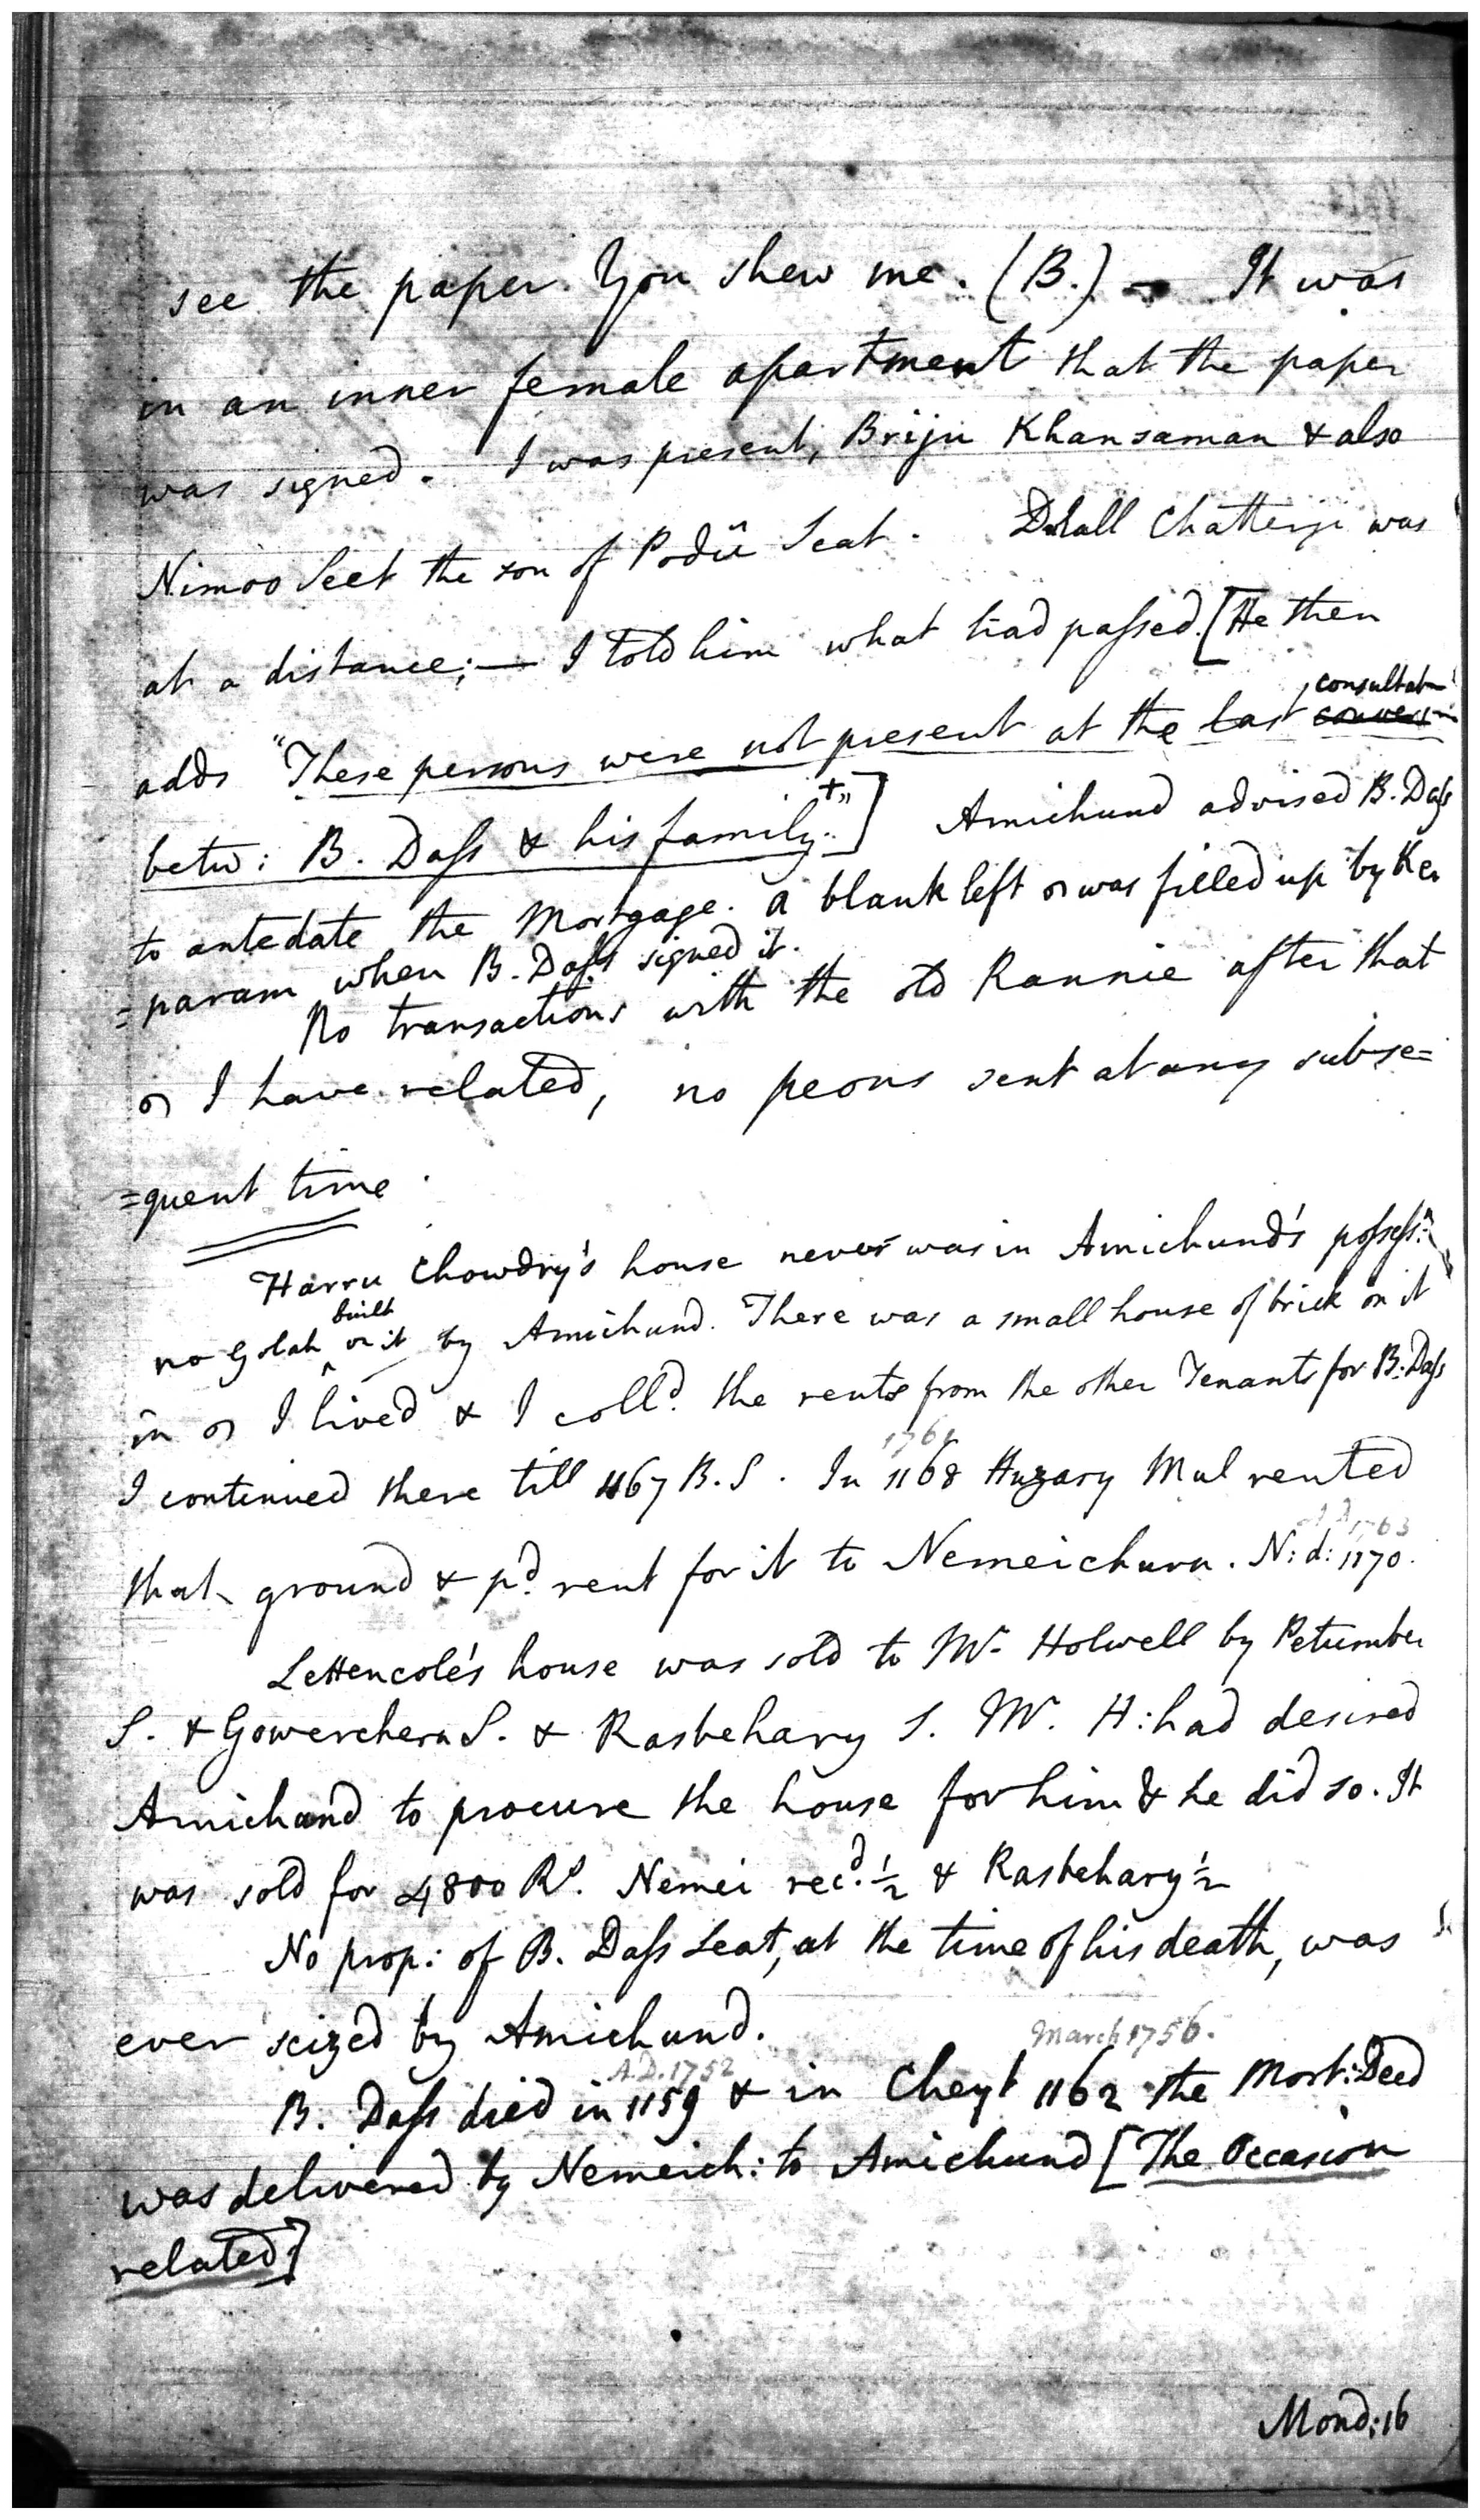 see the paper You shew me. (B.) — It was
in an inner female apartment that the paper
was signed. I was present, Briju Khansaman & also
Nimoo Seet the son of Podü Seat. Dulall Chatterji was
at a distance; — I told him what had passed. [He then
consultatn
adds "These persons were not present at the last
betw: B. Dass & his family.+"] Amichund advised B. Dass
to antedate the Mortgage. a blank left was filled up by Ke
=param when B. Dass signed it.
No transactions with the old Rannie after that
I have related, no peons sent at any subse=
=quent time.
Harru Chowdry's house never was in Amichund's possess:n
built
no Golah on it by Amichund. There was a small house of brick on it
in I lived & I coll.d the rents from the other Tenants for B. Dass
1761
I continued there till 1167 B.S. In 1168 Huzary Mul rented
A D 1763
that ground & p.d rent for it to Nemeichurn. N: d: 1170.
Lettencole's house was sold to Mr. Holwell by Petumber
S. & Gowerchern S. & Rasbehary S. Mr. H: had desired
Amichand to procure the house for him & he did so. It
was sold for 4800 Rs. Nemei rec.d ½ & Rasbehary ½
No prop: of B. Dass Seat, at the time of his death, was
ever seized by Amichund.
A.D. 1752 March 1756.
B. Dass died in 1159 & in Cheyt 1162 the Mort: Deed
was delivered by Nemeich: to Amichund [The Occasion
related]
Mond: 16